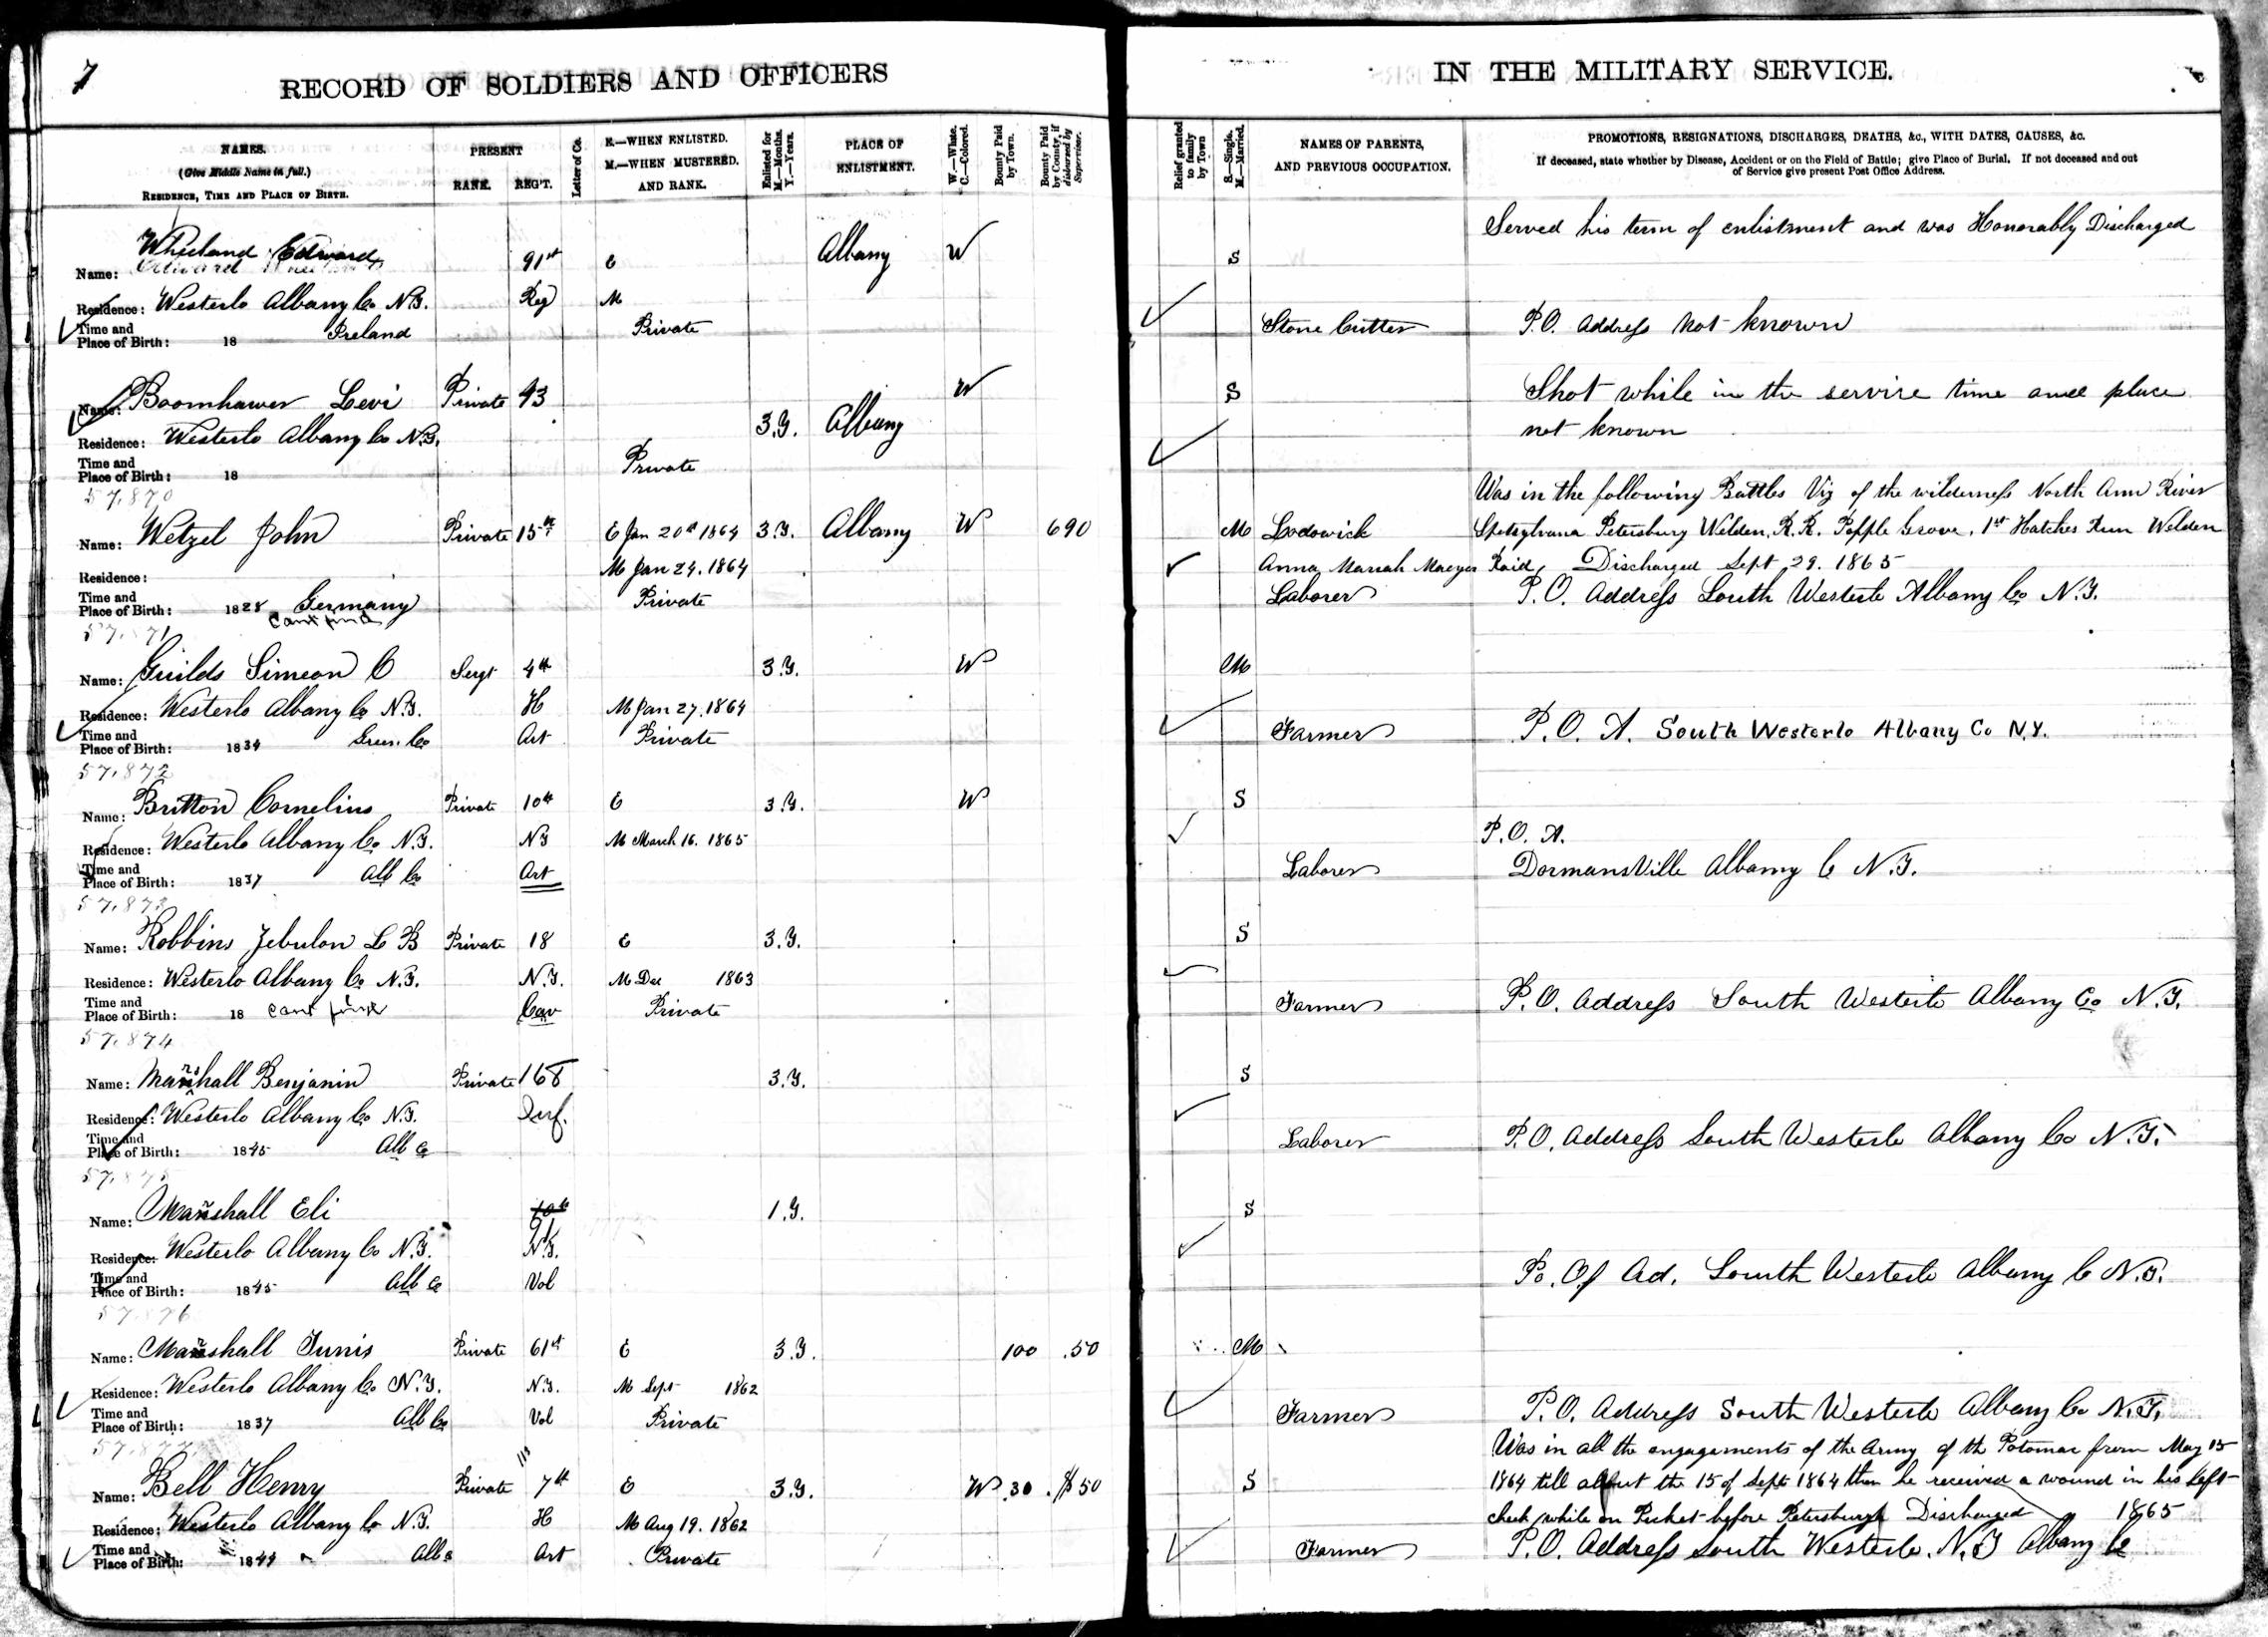 7
RECORD OF SOLDIERS AND OFFICERS
IN THE MILITARY SERVICE.
NAMES.
(Give Middle Name in full.)
RESIDENCE, TIME AND PLACE OF BIRTH.
PRESENT
RANK. REG'T.
Letter of Co.
E.—WHEN ENLISTED.
M.—WHEN MUSTERED.
AND RANK.
Enlisted for
M.—Months.
Y.—Years.
PLACE OF
ENLISTMENT.
W.—White.
C.—Colored.
Bounty Paid
by Town.
Bounty Paid
by County, if
disbursed by
Supervisor.
Relief granted
to family
by Town
S.—Single.
M.—Married.
NAMES OF PARENTS,
AND PREVIOUS OCCUPATION.
PROMOTIONS, RESIGNATIONS, DISCHARGES, DEATHS, &c., WITH DATES, CAUSES, &c.
If deceased, state whether by Disease, Accident or on the Field of Battle; give Place of Burial. If not deceased and out
of Service give present Post Office Address.
Served his term of enlistment and was Honorably Discharged
Name: Wheeland Edward 91st E Albany W S
Residence: Westerlo Albany Co N.Y. Reg M
Time and
Place of Birth: 18 Ireland Private Stone Cutter P.O. Address Not known
Name: Boomhawer Levi Private 43 W S Shot while in the service time and place
Residence: Westerlo Albany Co N.Y. 3.Y. Albany not known
Time and
Place of Birth: 18 Private
57,870 Was in the following Battles Viz of the wilderness North Ann River
Name: Wetzel John Private 15th E Jan 20th 1864 3.Y. Albany W 690 M Lodowick Spotsylvana Petersburg Welden, R.R. Popple Grove, 1st Hatches Run Welden
Residence: M Jan 24. 1864 Anna Mariah Maeyer Raid, Discharged Sept 29. 1865
Time and
Place of Birth: 1828 Germany Private Laborer P.O. Address South Westerlo Albany Co N.Y.
Cant find
57,871
Name: Guilds Simeon C Sergt 4th 3.Y. W M
Residence: Westerlo Albany Co N.Y. H M Jan 27. 1864
Time and
Place of Birth: 1834 Green. Co Art Private Farmer P.O.A. South Westerlo Albany Co N.Y.
57,872
Name: Britton Cornelius Private 10th E 3.Y. W S
Residence: Westerlo Albany Co N.Y. NY M March 16. 1865 P.O.A.
Time and
Place of Birth: 1837 Alb Co Art Laborer DormansVille Albany C N.Y.
57,873
Name: Robbins Zebulon L B Private 18 E 3.Y. S
Residence: Westerlo Albany Co N.Y. N.Y. M Dec 1863
Time and
Place of Birth: 18 cant find Cav Private Farmer P.O. Address South Westerlo Albany Co N.Y.
57,874
Name: Marshall Benjamin Private 168 3.Y. S
Residence: Westerlo Albany Co N.Y. Inf.
Time and
Place of Birth: 1845 Alb C Laborer P.O. Address South Westerlo Albany Co N.Y.
57,875
Name: Marshall Eli 1.Y. S
Residence: Westerlo Albany Co N.Y. N.Y.
Time and
Place of Birth: 1845 Alb C Vol Po. Of Ad. South Westerlo Albany C N.Y.
57,876
Name: Marshall Tunis Private 61st E 3.Y. 100 .50 M
Residence: Westerlo Albany Co N.Y. N.Y. M Sept 1862
Time and
Place of Birth: 1837 Alb Co Vol Private Farmer P.O. Address South Westerlo Albany Co N.Y.
57,877 Was in all the engagements of the Army of the Potomac from May 15
Name: Bell Henry Private 7th E 3.Y. W 30 $50 S 1864 till about the 15 of Sept 1864 then he received a wound in his Left
Residence: Westerlo Albany Co N.Y. H M Aug 19. 1862 cheek while on Picket before Petersburgh Discharged 1865
Time and
Place of Birth: 1844 Alb Art Private Farmer P.O. Address South Westerlo. N.Y Albany Co